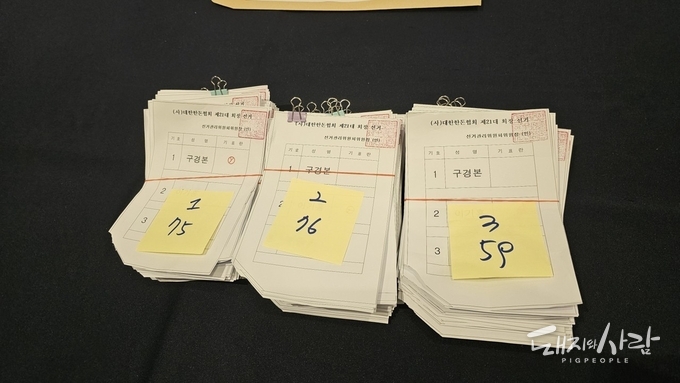 (사)대한한돈협회 제21대 회장 선거
선거관리위원회위원장 (인)
기호 성 명 기 표 란
1 구경본
2
3
1
75
(사)대한한돈협회 제21대 회장 선거
선거관리위원회위원장 (인)
기호 성 명 기 표 란
1 구경본
2
2
76
(사)대한한돈협회 제21대 회장 선거
선거관리위원회위원장 (인)
기호 성 명 기 표 란
1 구경본
2
3
3
59
돼지와사람
PIGPEOPLE